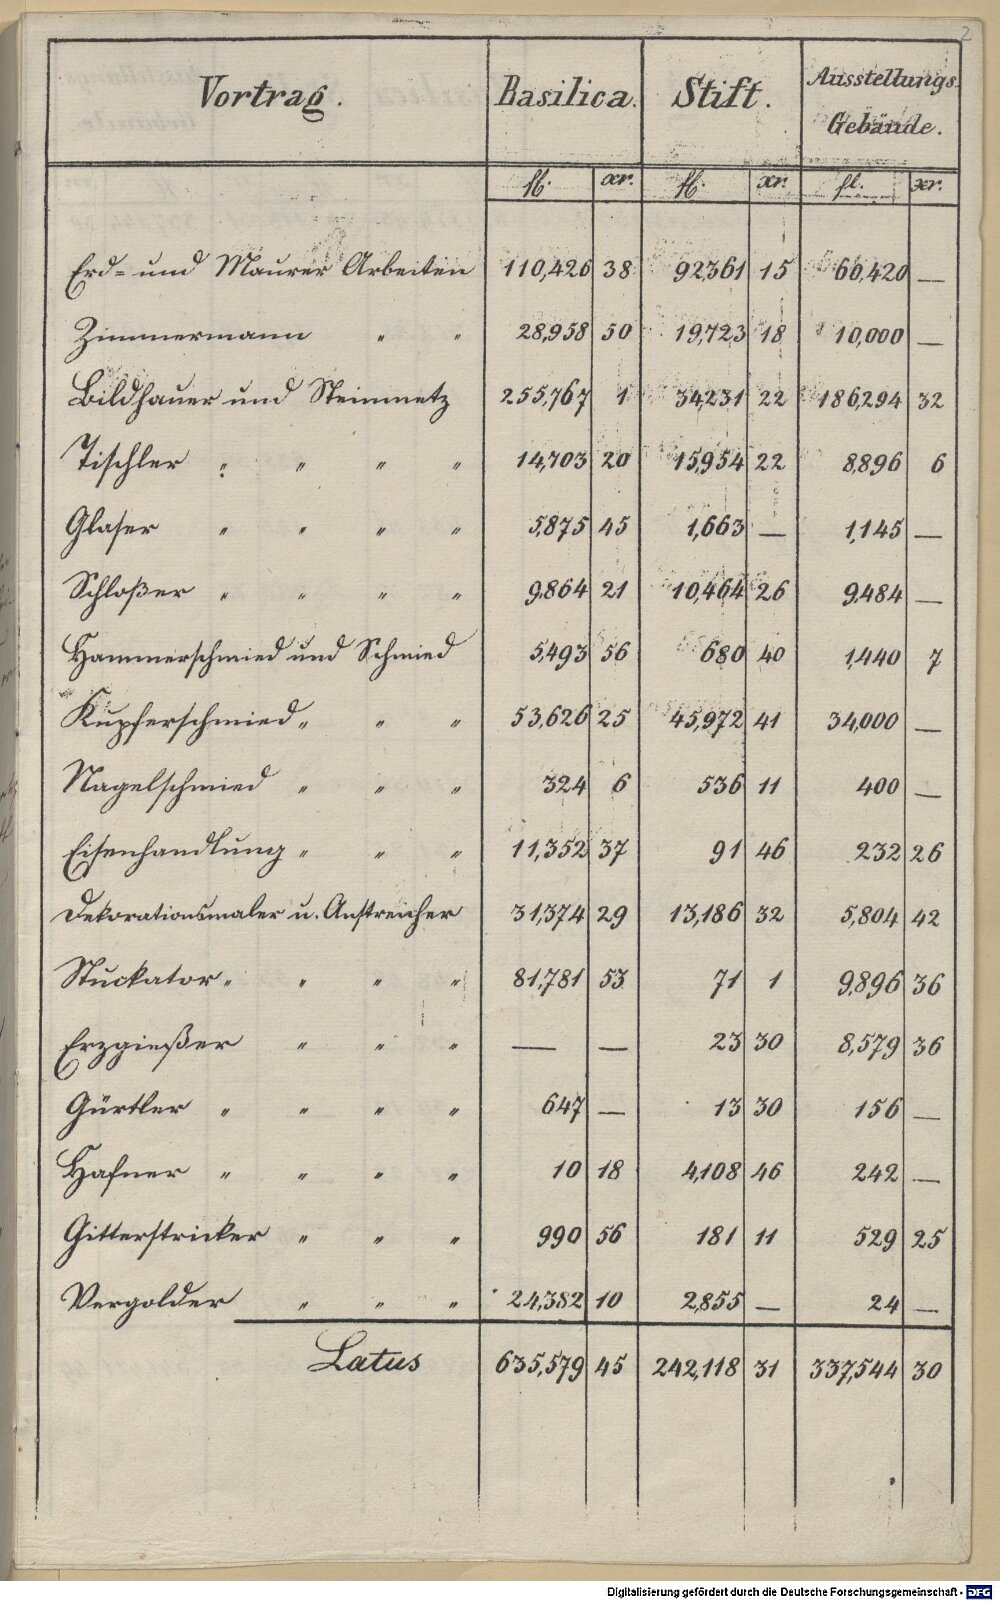 2
Vortrag. Basilica. Stift. Ausstellungs-Gebäude.
fl. xr. fl. xr. fl. xr.
Erd- und Maurer Arbeiten 110,426 38 92,361 15 60,420 —
Zimmermann " " 28,958 50 19,723 18 10,000 —
Bildhauer und Steinmetz 255,767 1 34,231 22 186,294 32
Tischler " " " " 14,703 20 15,954 22 8,896 6
Glaser " " " " 5,875 45 1,663 — 1,145 —
Schloßer " " " " 9,864 21 10,464 26 9,484 —
Hammerschmied und Schmied 5,493 56 680 40 1,440 7
Kupferschmied " " " 53,626 25 45,972 41 34,000 —
Nagelschmied " " " 324 6 536 11 400 —
Eisenhandlung " " " 11,352 37 91 46 232 26
Dekorationsmaler u. Anstreicher 31,374 29 13,186 32 5,804 42
Stuckator " " " " 81,781 53 71 1 9,896 36
Erzgießer " " " — — 23 30 8,579 36
Gürtler " " " " 647 — 13 30 156 —
Hafner " " " " 10 18 4,108 46 242 —
Gitterstricker " " " 990 56 181 11 529 25
Vergolder " " " 24,382 10 2,855 — 24 —
Latus 635,579 45 242,118 31 337,544 30
Digitalisierung gefördert durch die Deutsche Forschungsgemeinschaft - DFG